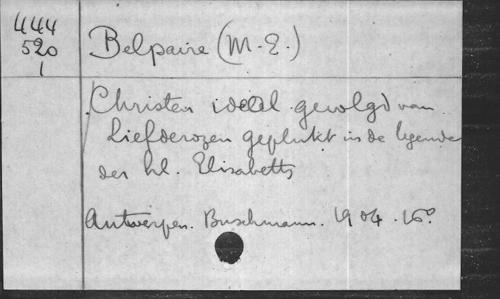 444
520
1
Belpaire (M.E.)
Christen ideal gevolgd van
liefderozen geplukt in de legende
der hl. Elisabeth
Antwerpen. Buschmann. 1904. 16º